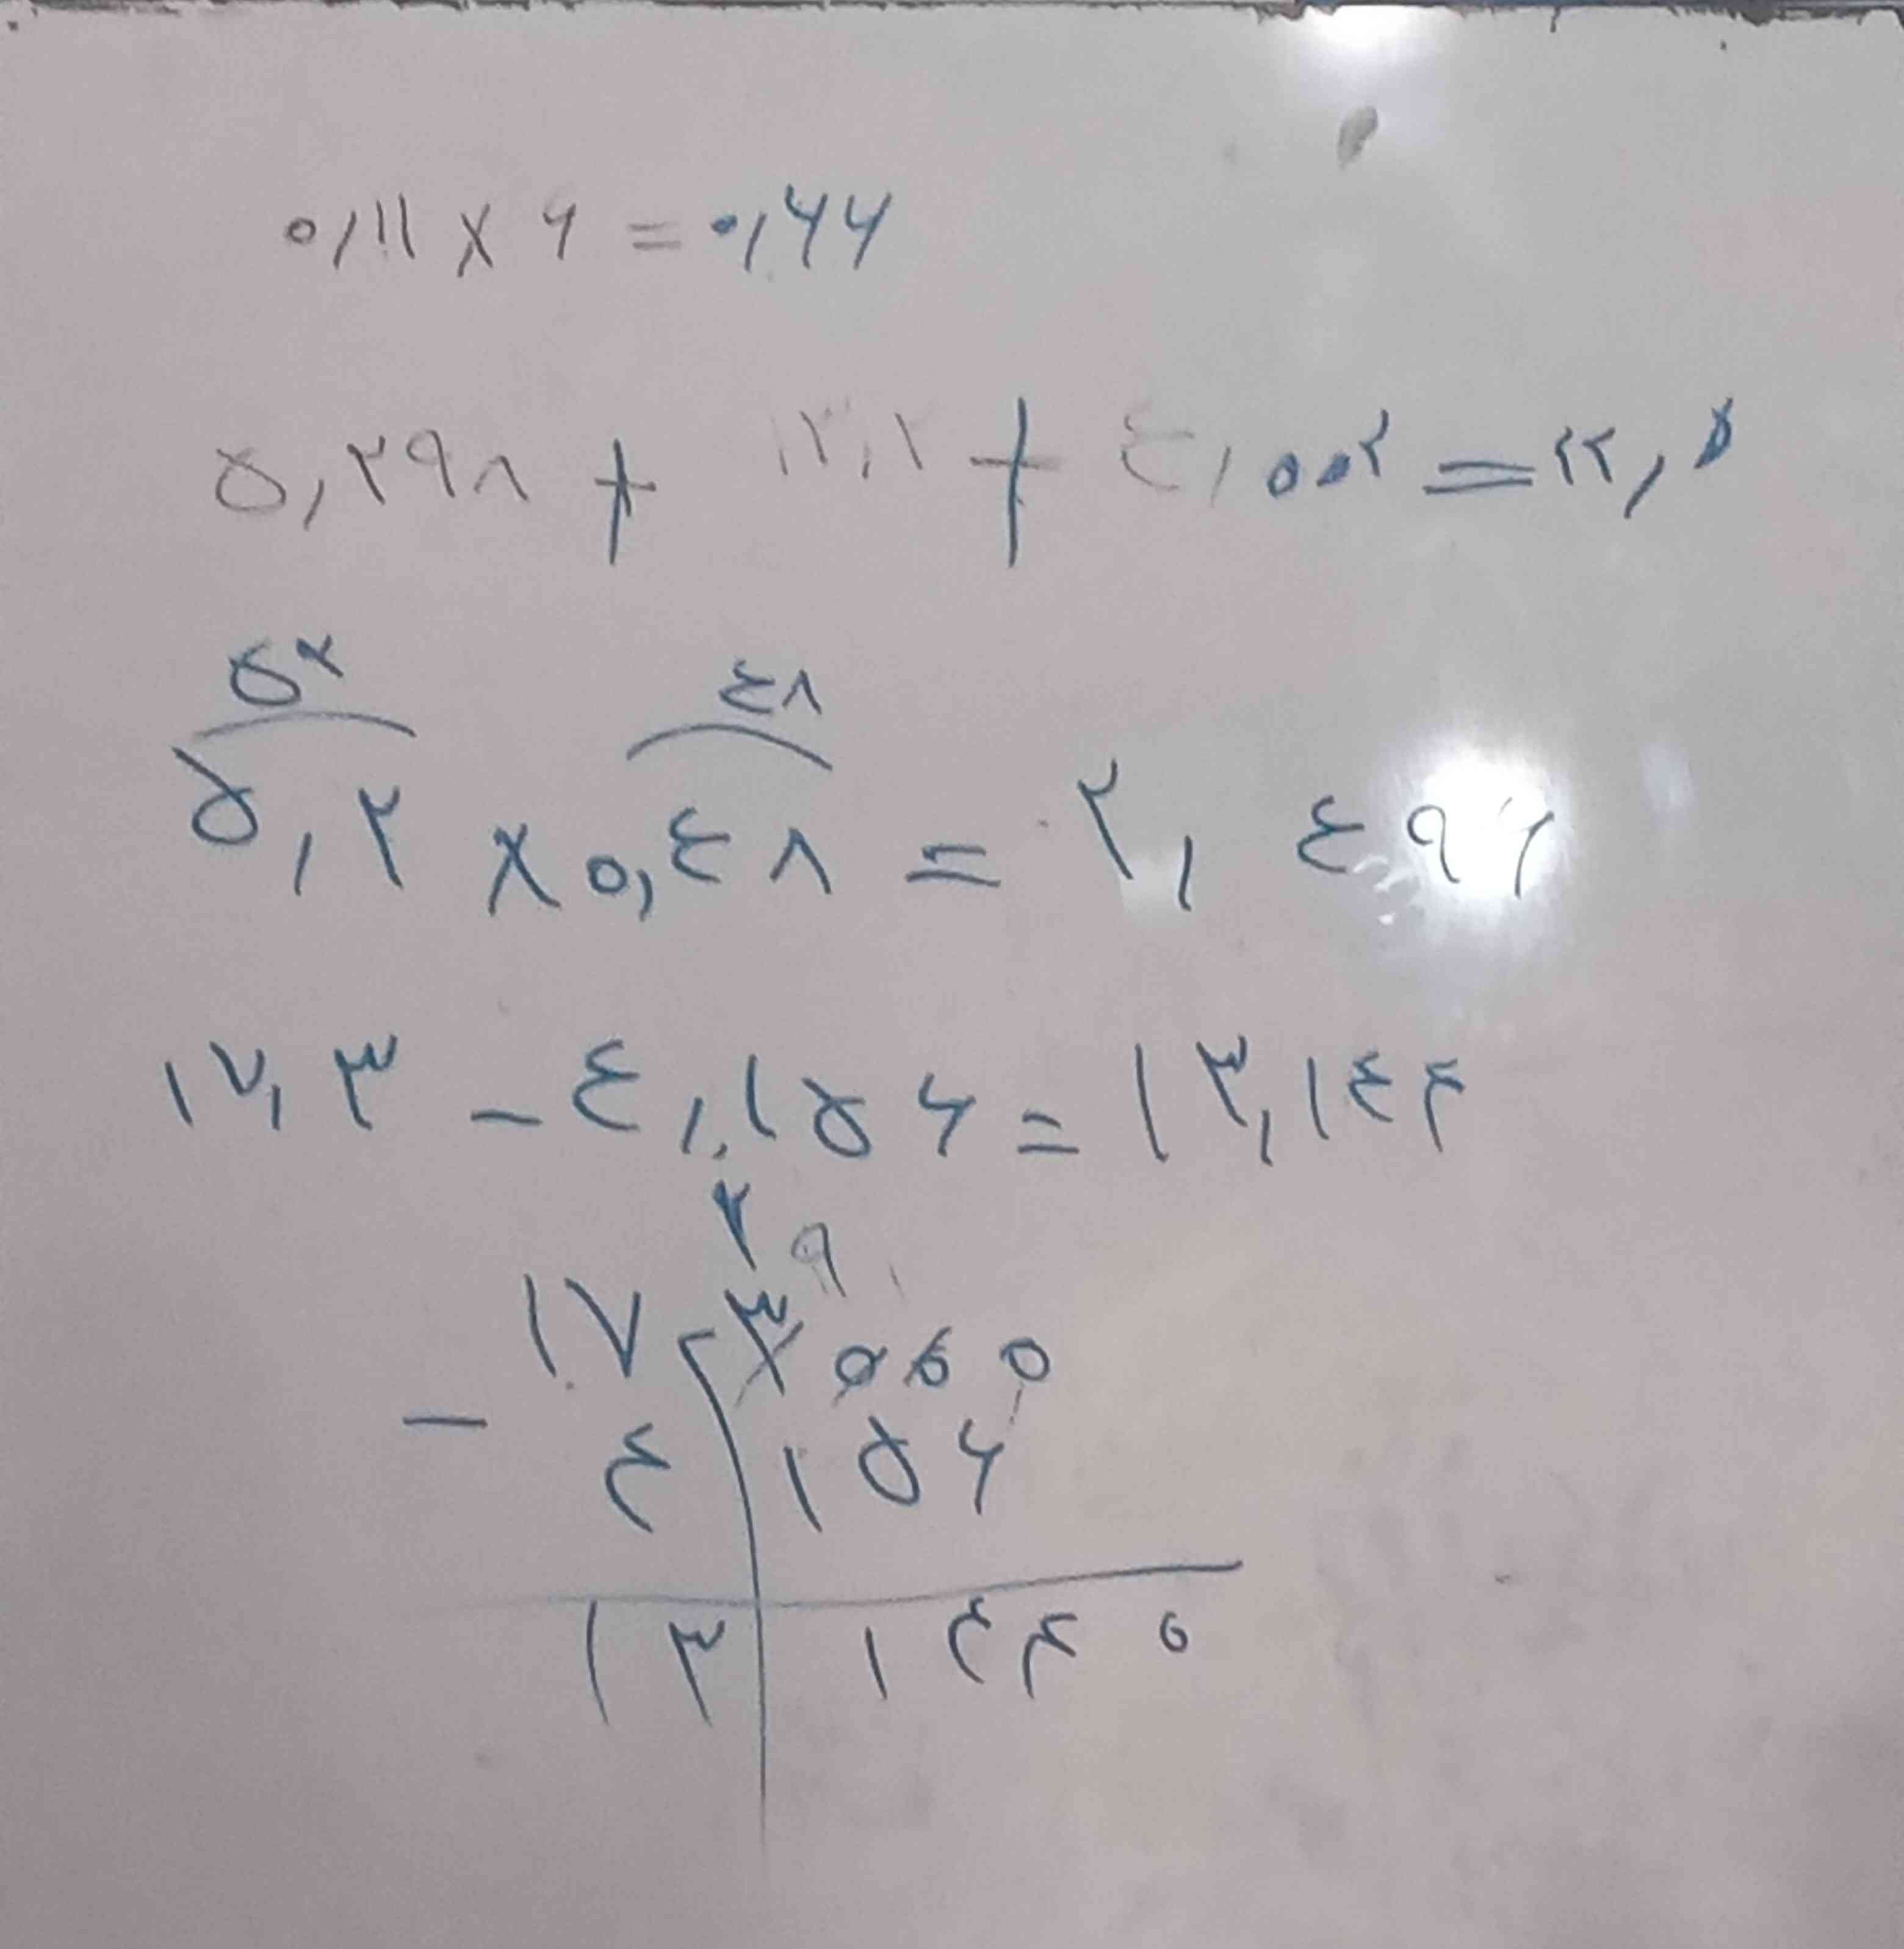 ۰٫۱۱ × ۶ = ۰٫۶۶
۵٫۲۹۸ + ۱۳٫۲ + ۴٫۰۰۲ = ۲۲٫۵
۵۲ ۴۸
۵٫۲ × ۰٫۴۸ = ۲٫۴۹۶
۱۷٫۳ - ۴٫۱۵۶ = ۱۳٫۱۴۴
۲ ۹ ۱
۱۷٫۳۰۰۰
- ۴ ۱۵۶
۱۳ ۱۴۴۰